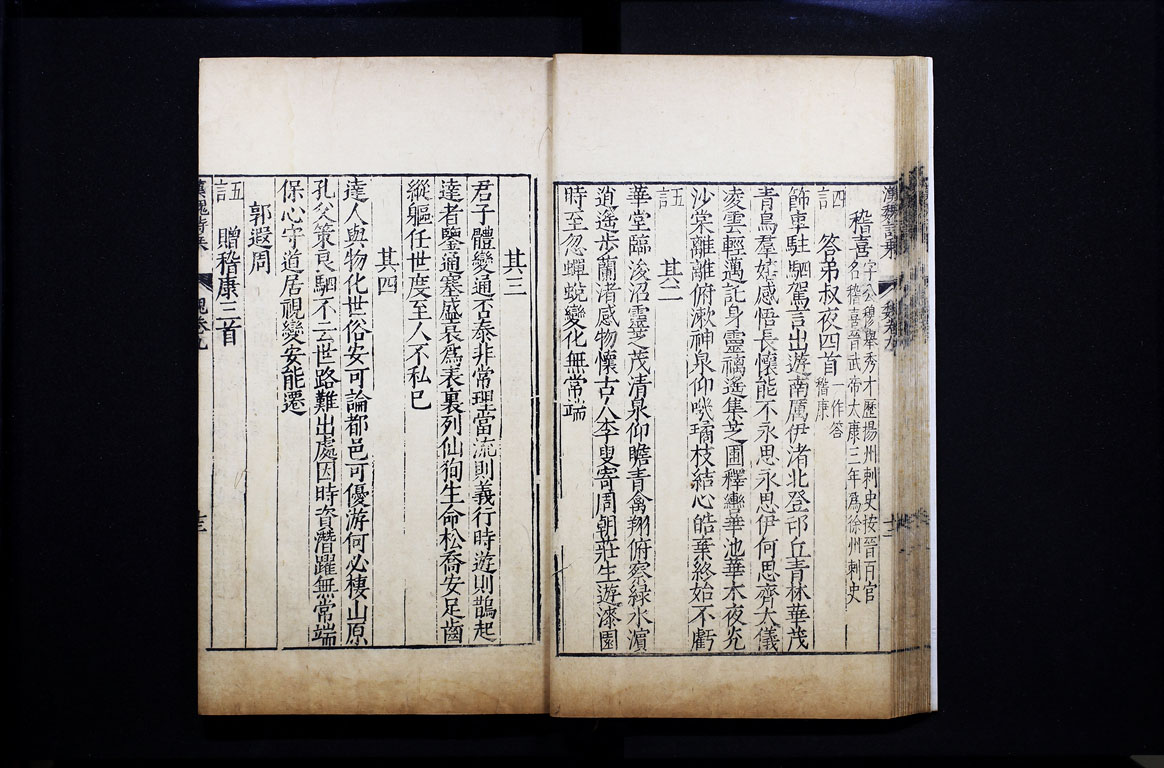 漢魏詩乘 魏卷九 十二
嵇喜 字公穆舉秀才歷揚州刺史按晉百官
名嵇喜晉武帝太康三年為徐州刺史
四言 答弟叔夜四首 一作答
嵇康
飾車駐駟駕言出遊南厲伊渚北登邙丘青林華茂
青鳥羣嬉感悟長懷能不永思永思伊何思齊大儀
凌雲輕邁託身靈螭遙集芝圃釋轡華池華木夜光
沙棠離離俯漱神泉仰嘰瓊枝結心皓素終始不虧
五言 其二
華堂臨浚沼靈芝茂清泉仰瞻青禽翔俯察緑水濵
逍遙步蘭渚感物懷古人李叟寄周朝莊生遊漆園
時至忽蟬蛻變化無常端
其三
君子體變通否泰非常理當流則義行時遊則鵲起
達者鑒通塞盛衰為表裏列仙狥生命松喬安足齒
縱軀任世度至人不私已
其四
達人與物化世俗安可論都邑可優游何必棲山原
孔父策良駟不云世路難出處因時資潛躍無常端
保心守道居視變安能遷
郭遐周
五言 贈嵇康三首
漢魏詩乘 魏卷九 十三